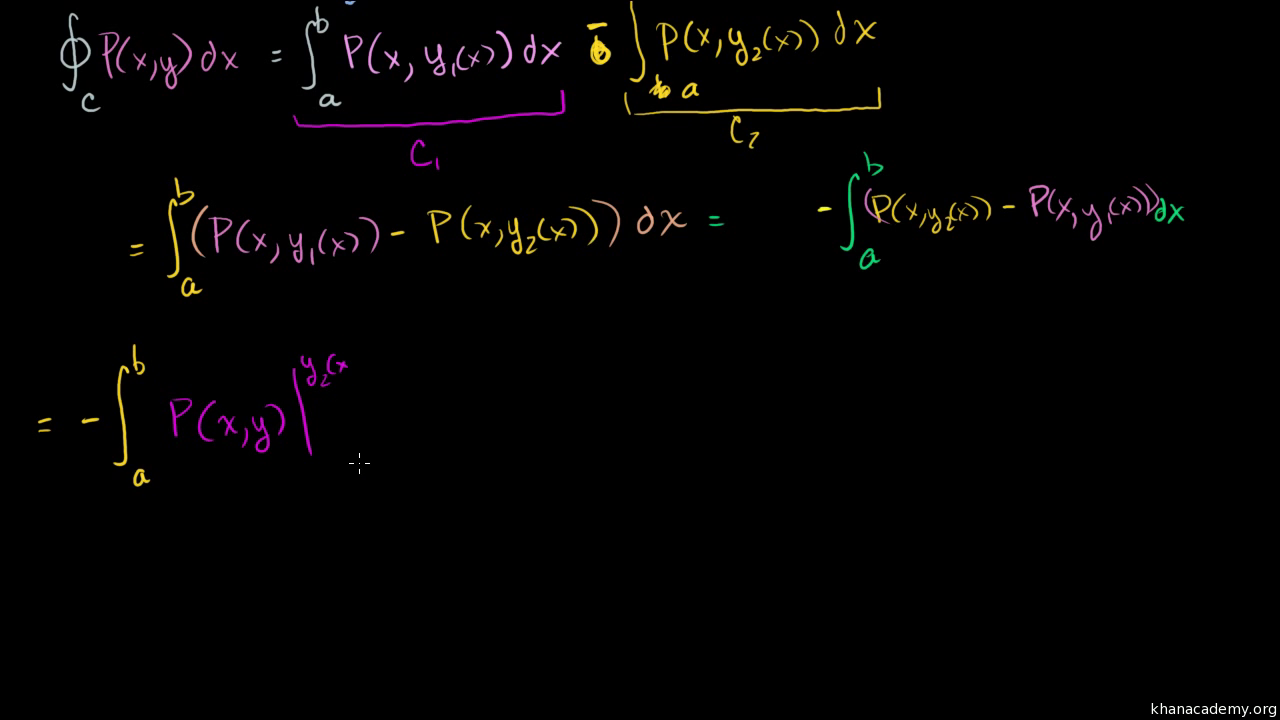 ∮_C P(x,y) dx = ∫_a^b P(x, y₁(x)) dx - ∫_a P(x, y₂(x)) dx
C₁ C₂
= ∫_a^b (P(x, y₁(x)) - P(x, y₂(x))) dx = - ∫_a^b (P(x, y₂(x)) - P(x, y₁(x))) dx
= - ∫_a^b P(x,y) |^y₂(x
khanacademy.org